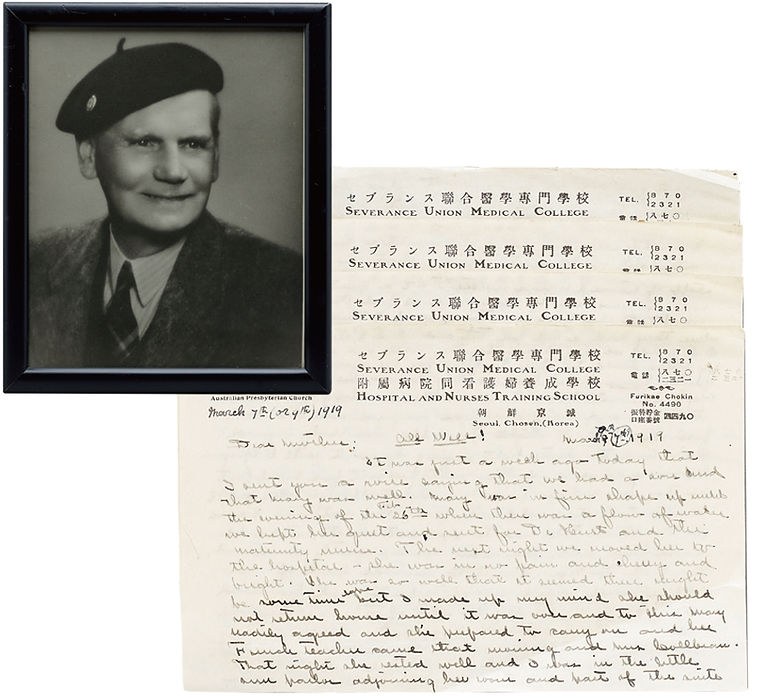 セブランス聯合醫學專門學校
SEVERANCE UNION MEDICAL COLLEGE
TEL. 870
2321
電話 八七〇
セブランス聯合醫學專門學校
SEVERANCE UNION MEDICAL COLLEGE
TEL. 870
2321
電話 八七〇
セブランス聯合醫學專門學校
SEVERANCE UNION MEDICAL COLLEGE
TEL. 870
2321
電話 八七〇
セブランス聯合醫學專門學校
SEVERANCE UNION MEDICAL COLLEGE
附属病院同看護婦養成學校
HOSPITAL AND NURSES TRAINING SCHOOL
朝鮮京城
Seoul, Chosen, (Korea)
TEL. 870
2321
電話 八七〇
二三二一
Furikae Chokin
No. 4490
振替貯金
口座番號 四四九〇
Australian Presbyterian Church
March 7th (or 9th) 1919
Dear Mother: All Well! March 1919
It was just a week ago today that
I sent you a wire saying that we had a son and
that Mary was well. Mary was in fine shape up until
the evening of the Feb. 26th when there was a flow of water
we kept her quiet and sent for Dr and the
maternity nurse. The next night we moved her to
the hospital - she was in no pain and cheery and
bright. She was so well that it seemed there might
be some time but I made up my mind she should
not return home until it was over and to this Mary
readily agreed and she prepared to carry on and her
French teacher came that morning and Mrs
That night she rested well and I was in the little
sun parlor adjoining her room and part of the suite